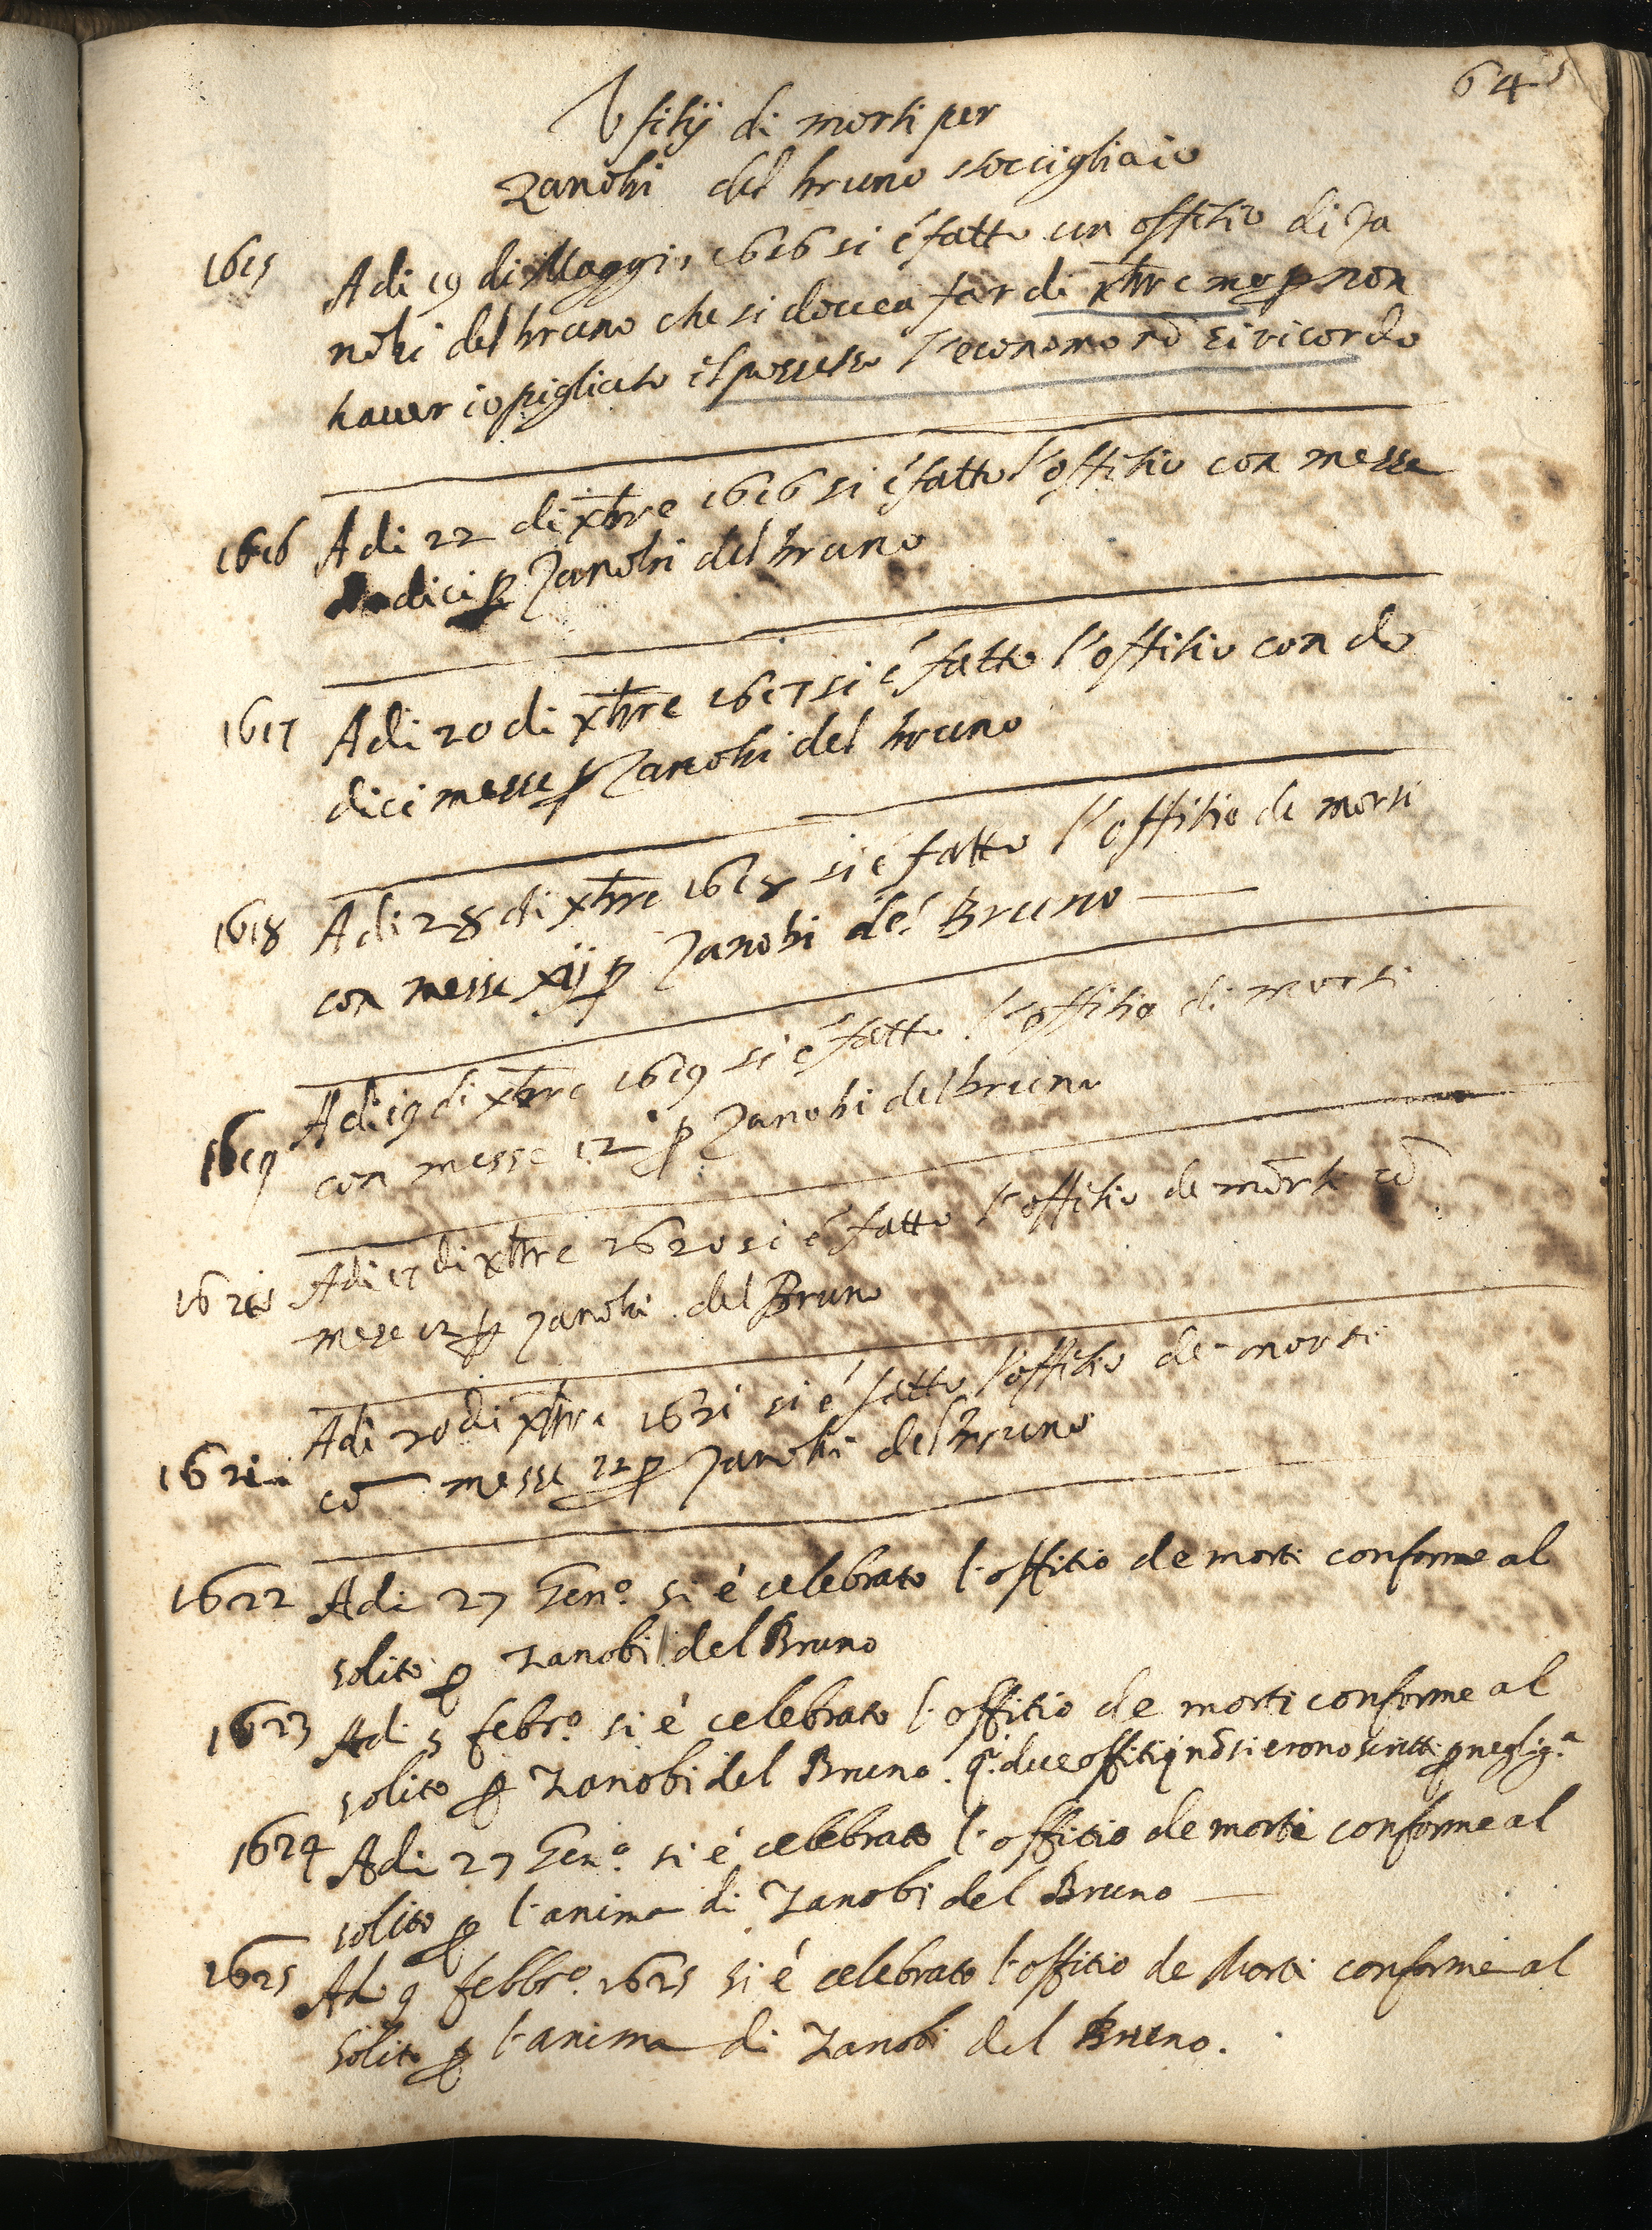 64
Ufitij di morti per
Zanobi del bruno stoccigliaio
1615 A di 19 di Maggio 1616 si é fatto un offitio di Za
nobi del bruno che si doueа far di xbre m p non
hauer io pigliato il possesso l'economo nō si ricordo
1616 A di 22 di xbre 1616 si é fatto l'offitio con messe
dodici p Zanobi del bruno
1617 A di 20 di xbre 1617 si é fatto l'offitio con do
dici messe p Zanobi del bruno
1618 A di 28 di xbre 1618 si é fatto l'offitio de morti
con messe xij p Zanobi del Bruno
1619 A di 19 di xbre 1619 si é fatto l'offitio di morti
con messe 12 p Zanobi del bruno
1620 A di 17 di xbre 1620 si é fatto l'offitio de morti cō
mese 12 p Zanobi del Bruno
1621 A di 20 di xbre 1621 si é fatto l'offitio de morti
cō messe 12 p Zanobi del bruno
1622 A di 27 Gen.o si é celebrato l'offitio de morti conforme al
solito p Zanobi del Bruno
1623 A di 5 febr.o si é celebrato l'offitio de morti conforme al
solito p Zanobi del Bruno. q.i due offitij nō si erono scritti p neglig.a
1624 A di 27 Gen.o si é celebrato l'offitio de morti conforme al
solito p l'anima di Zanobi del Bruno
1625 A di 9 febbr.o 1625 si é celebrato l'offitio de Morti conforme al
solito p l'anima di Zanobi del Bruno.